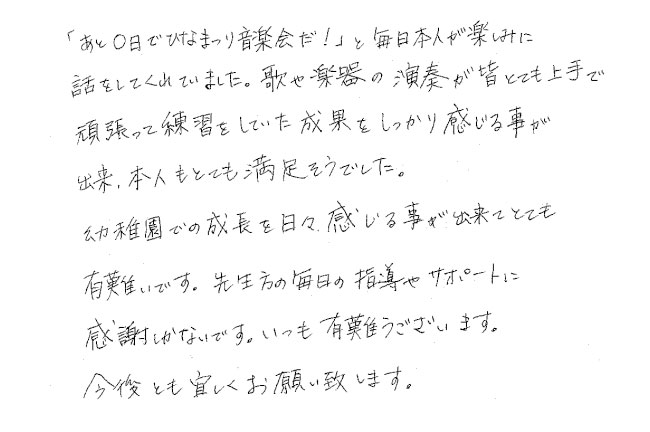 「あと〇日でひなまつり音楽会だ！」と毎日本人が楽しみに
話をしてくれていました。歌や楽器の演奏が皆とても上手で
頑張って練習をしていた成果をしっかり感じる事が
出来、本人もとても満足そうでした。
幼稚園での成長を日々、感じる事が出来てとても
有難いです。先生方の毎日の指導やサポートに
感謝しかないです。いつも有難うございます。
今後とも宜しくお願い致します。